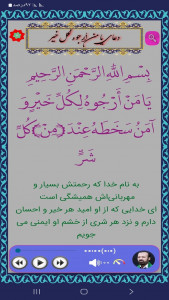 دعای یا من ارجوه لکل خیر
بِسْمِ اللَّهِ الرَّحْمَنِ الرَّحِيمِ
يَا مَنْ أَرْجُوهُ لِكُلِّ خَيْرٍ وَ
آمَنُ سَخَطَهُ عِنْدَ (مِنْ) كُلِّ
شَرٍّ
به نام خدا که رحمتش بسیار و
مهربانی‌اش همیشگی است
ای خدایی که از او امید هر خیر و احسان
دارم و نزد هر شری از خشم او ایمنی می
جویم